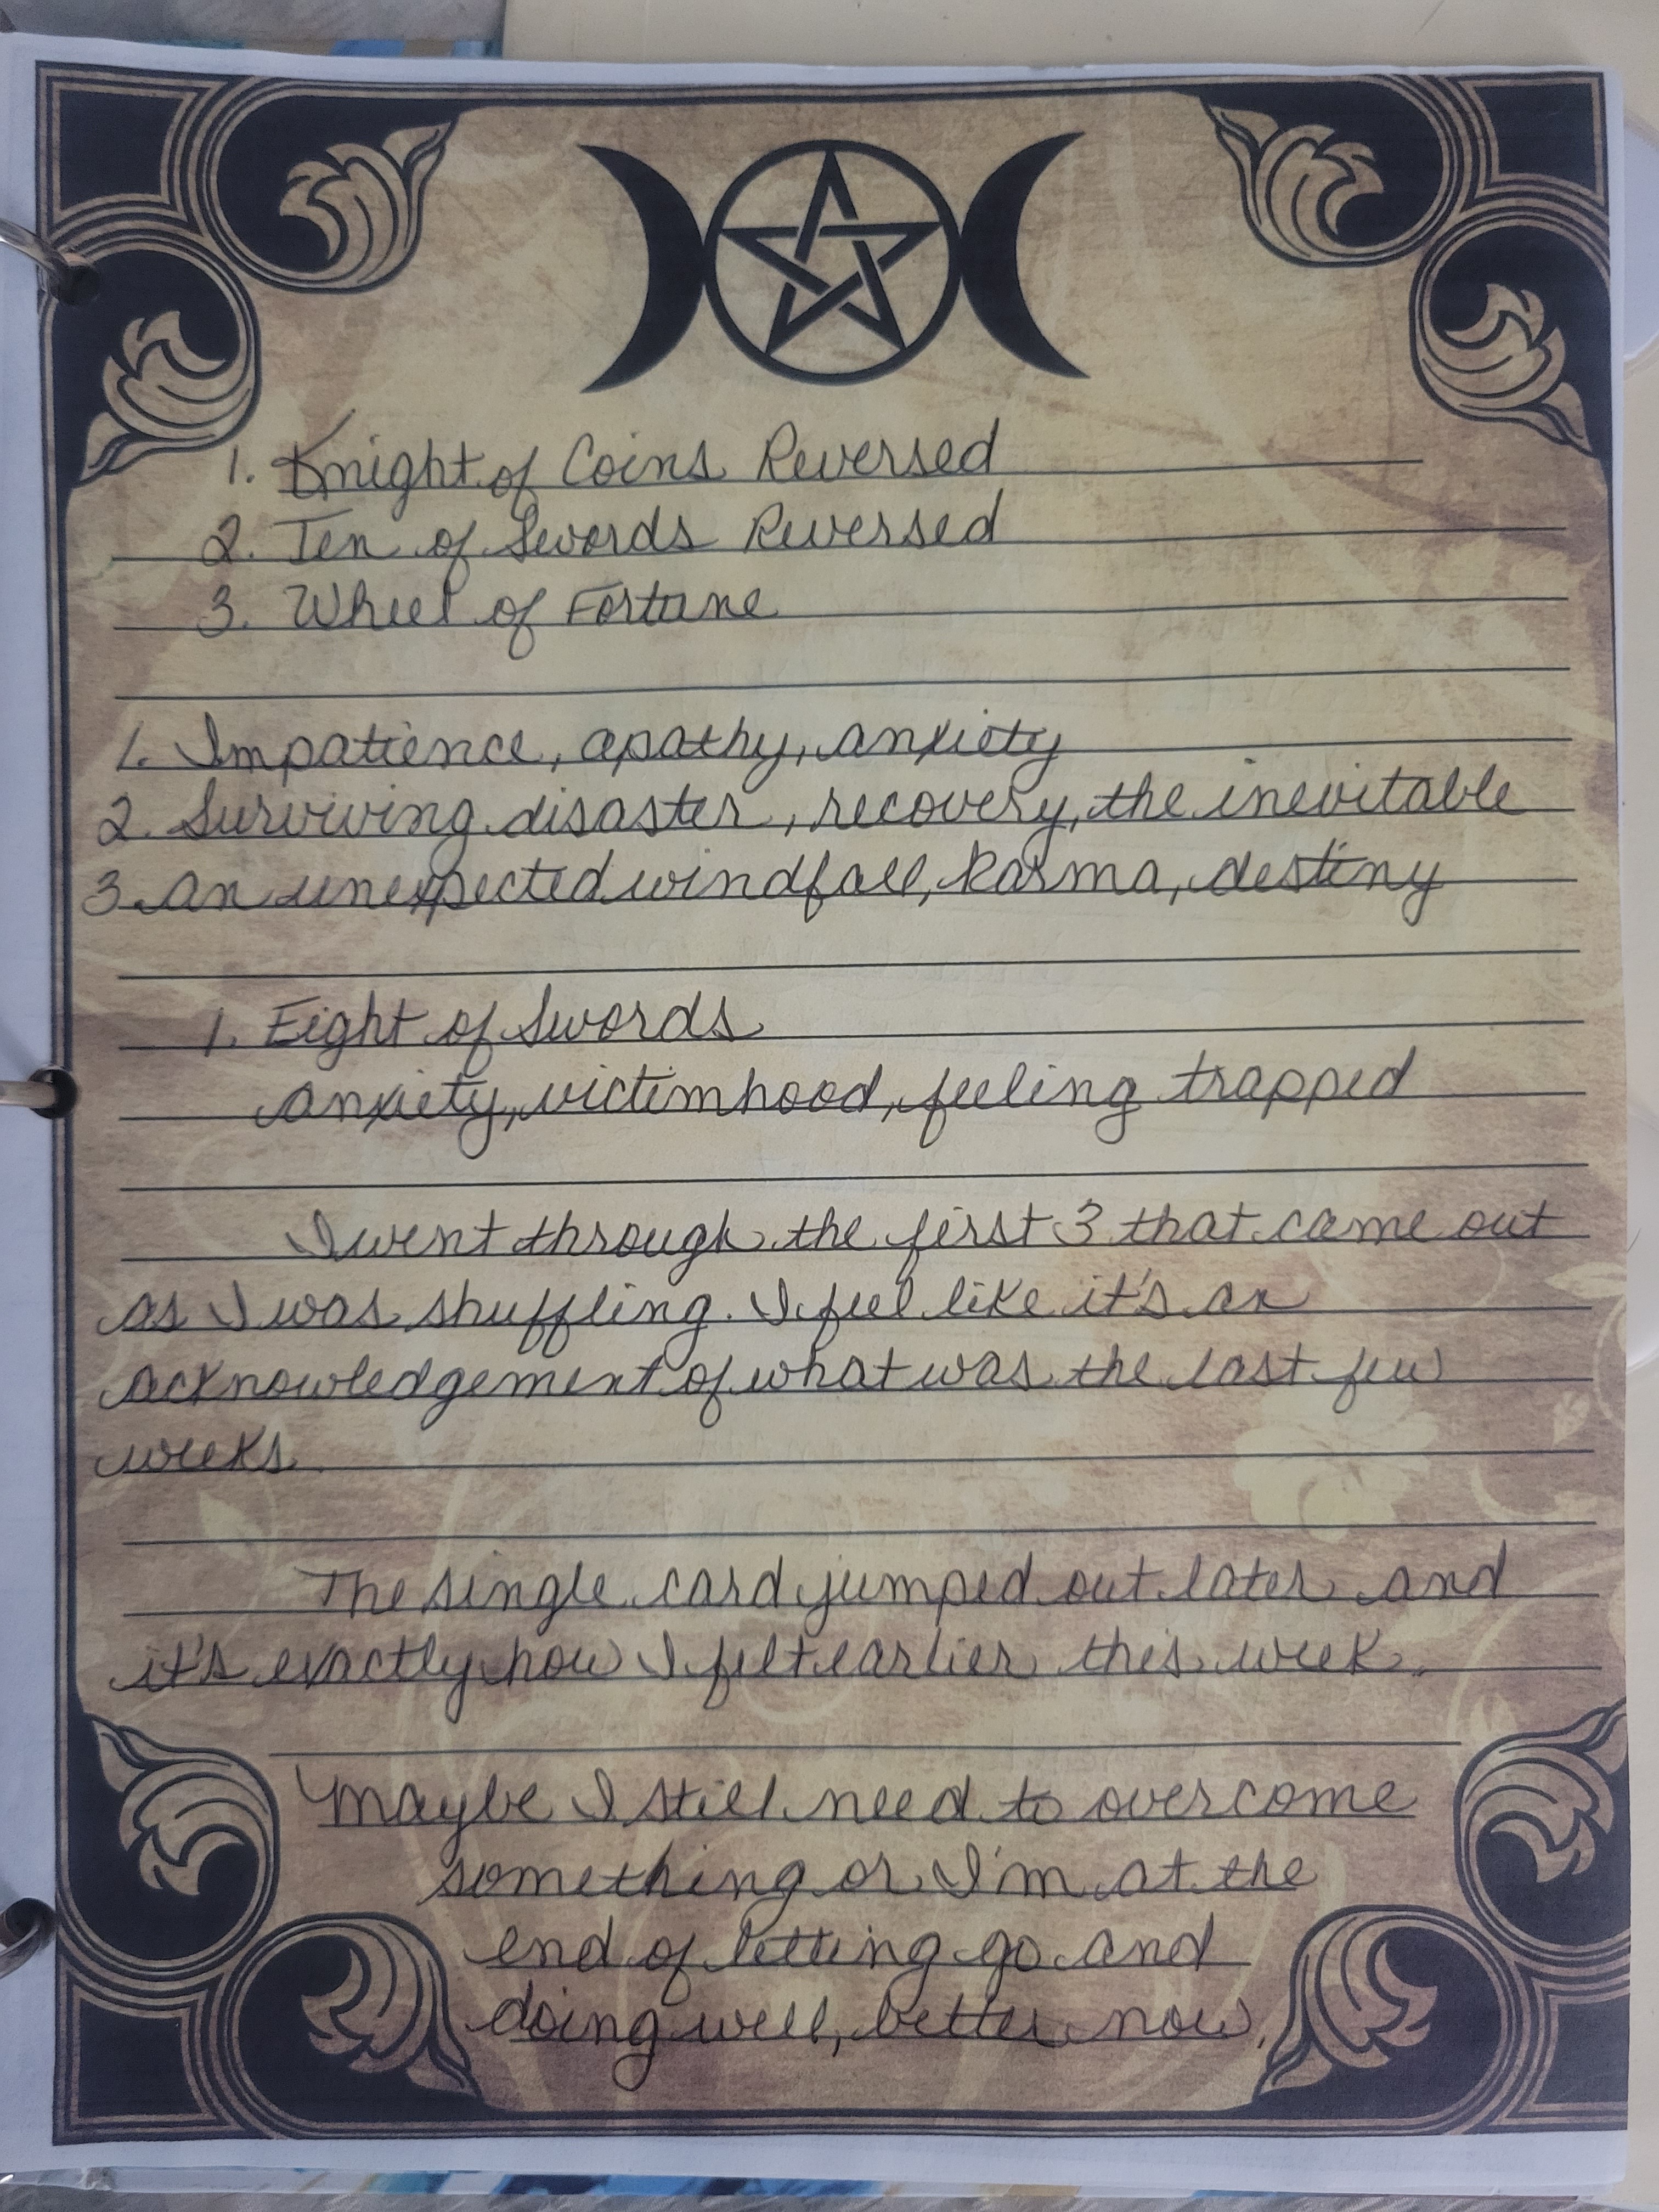 1. Knight of Coins Reversed
2. Ten of Swords Reversed
3. Wheel of Fortune
1. Impatience, apathy, anxiety
2. Surviving disaster, recovery, the inevitable
3. an unexpected windfall, karma, destiny
1. Eight of Swords
anxiety, victimhood, feeling trapped
I went through the first 3 that came out
as I was shuffling. I feel like it's an
acknowledgement of what was the last few
weeks.
The single card jumped out later and
it's exactly how I felt earlier this week.
Maybe I still need to overcome
something or I'm at the
end of letting go and
doing well, better now.